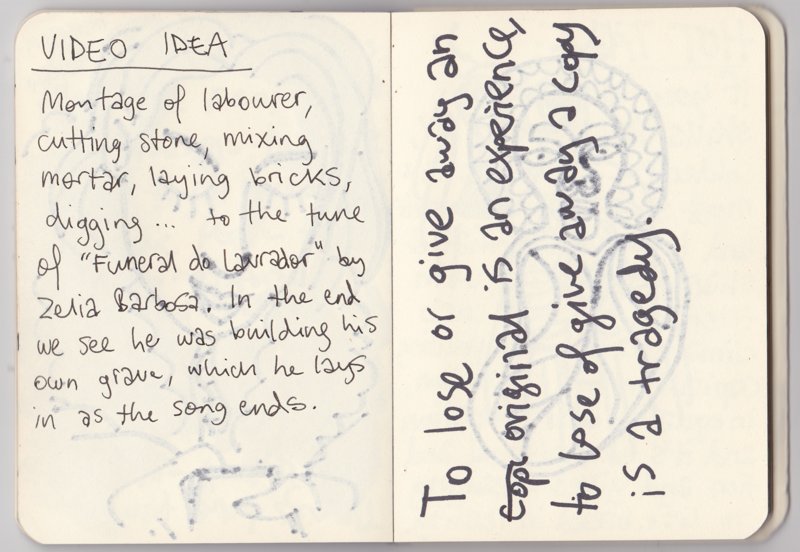 VIDEO IDEA
Montage of labourer,
cutting stone, mixing
mortar, laying bricks,
digging... to the tune
of "Funeral do Lavrador" by
Zelia Barbosa. In the end
we see he was building his
own grave, which he lays
in as the song ends.
To lose or give away an
copi original is an experience,
to lose of give away a copy
is a tragedy.